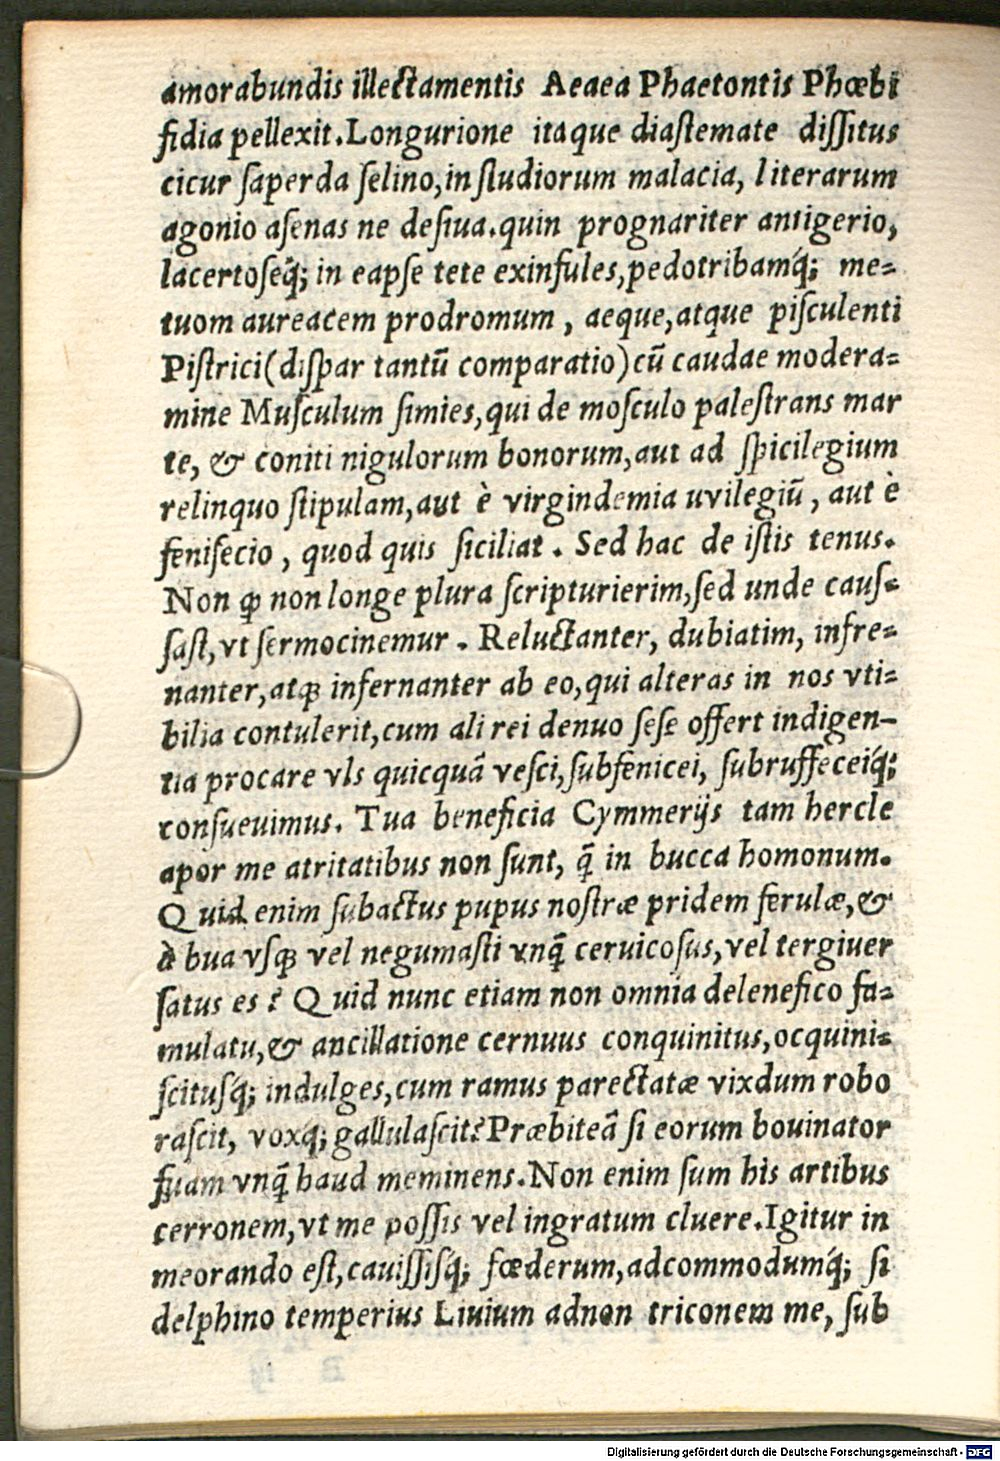 amorabundis illectamentis Aeaea Phaetontis Phœbi
fidia pellexit. Longurione itaque diastemate dissitus
cicur saperda selino, in studiorum malacia, literarum
agonio asenas ne desiua. quin prognariter antigerio,
lacertoseq́; in eapse tete exinfules, pedotribamq́; me-
tuom aureacem prodromum, aeque, atque pisculenti
Pistrici (dispar tantū comparatio) cū caudae modera-
mine Musculum simies, qui de mosculo palestrans mar
te, & coniti nigulorum bonorum, aut ad spicilegium
relinquo stipulam, aut è virgindemia uvilegiū, aut è
fenisecio, quod quis siciliat. Sed hac de istis tenus.
Non ꝙ non longe plura scripturierim, sed unde caus-
sast, vt sermocinemur. Reluctanter, dubiatim, infre-
nanter, atqꝫ infernanter ab eo, qui alteras in nos vti-
bilia contulerit, cum ali rei denuo sese offert indigen-
tia procare vls quicquā vesci, subfenicei, subruffeceiq́;
consueuimus. Tua beneficia Cymmerijs tam hercle
apor me atritatibus non sunt, q̄ in bucca homonum.
Quid enim subactus pupus nostræ pridem ferulæ, &
à bua vsqꝫ vel negumasti vnq̄ ceruicosus, vel tergiuer
satus es? Quid nunc etiam non omnia delenefico fa-
mulatu, & ancillatione cernuus conquinitus, ocquini-
scitusq́; indulges, cum ramus parectatæ vixdum robo
rascit, voxq́; gallulascit? Præbiteā si eorum bouinator
fuam vnq̄ haud meminens. Non enim sum his artibus
cerronem, vt me possis vel ingratum cluere. Igitur in
meorando est, cauissisq́; fœderum, adcommodumq́; si
delphino temperius Liuium adnon triconem me, sub
Digitalisierung gefördert durch die Deutsche Forschungsgemeinschaft - DFG